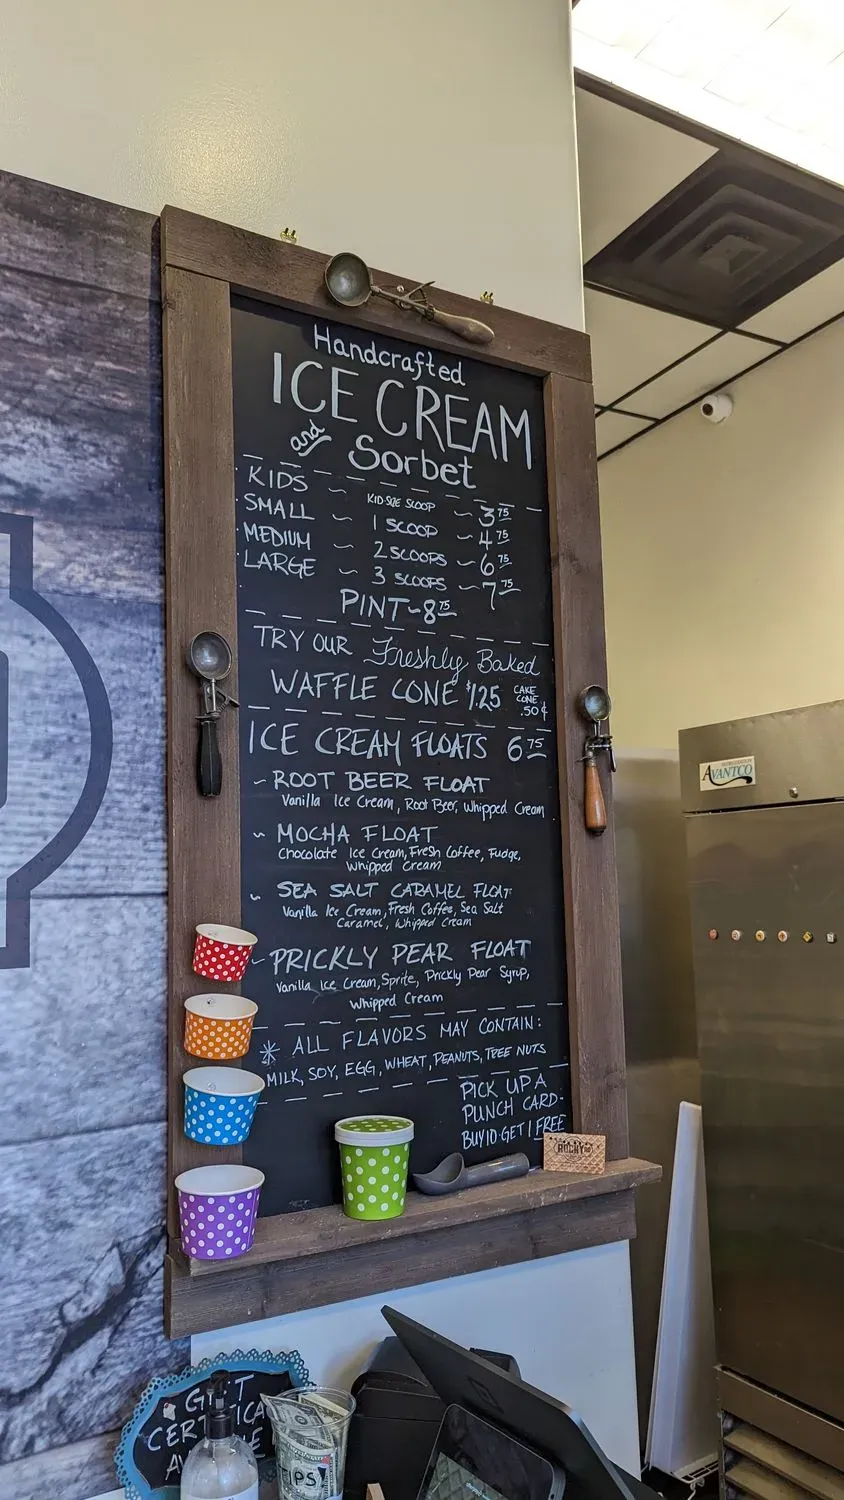 Handcrafted
ICE CREAM
and Sorbet
KIDS ~ KID-SIZE SCOOP ~ 3 75
SMALL ~ 1 SCOOP ~ 4 75
MEDIUM ~ 2 SCOOPS ~ 6 75
LARGE ~ 3 SCOOPS ~ 7 75
PINT ~ 8 75
TRY OUR Freshly Baked
WAFFLE CONE $1.25 CAKE CONE .50¢
ICE CREAM FLOATS 6 75
~ ROOT BEER FLOAT
Vanilla Ice Cream, Root Beer, Whipped Cream
~ MOCHA FLOAT
Chocolate Ice Cream, Fresh Coffee, Fudge,
Whipped Cream
~ SEA SALT CARAMEL FLOAT
Vanilla Ice Cream, Fresh Coffee, Sea Salt
Caramel, Whipped Cream
~ PRICKLY PEAR FLOAT
Vanilla Ice Cream, Sprite, Prickly Pear Syrup,
Whipped Cream
* ALL FLAVORS MAY CONTAIN:
MILK, SOY, EGG, WHEAT, PEANUTS, TREE NUTS
PICK UP A
PUNCH CARD-
BUY 10-GET 1 FREE
ROCKY
AVANTCO
REFRIGERATION
GIFT
TIPS